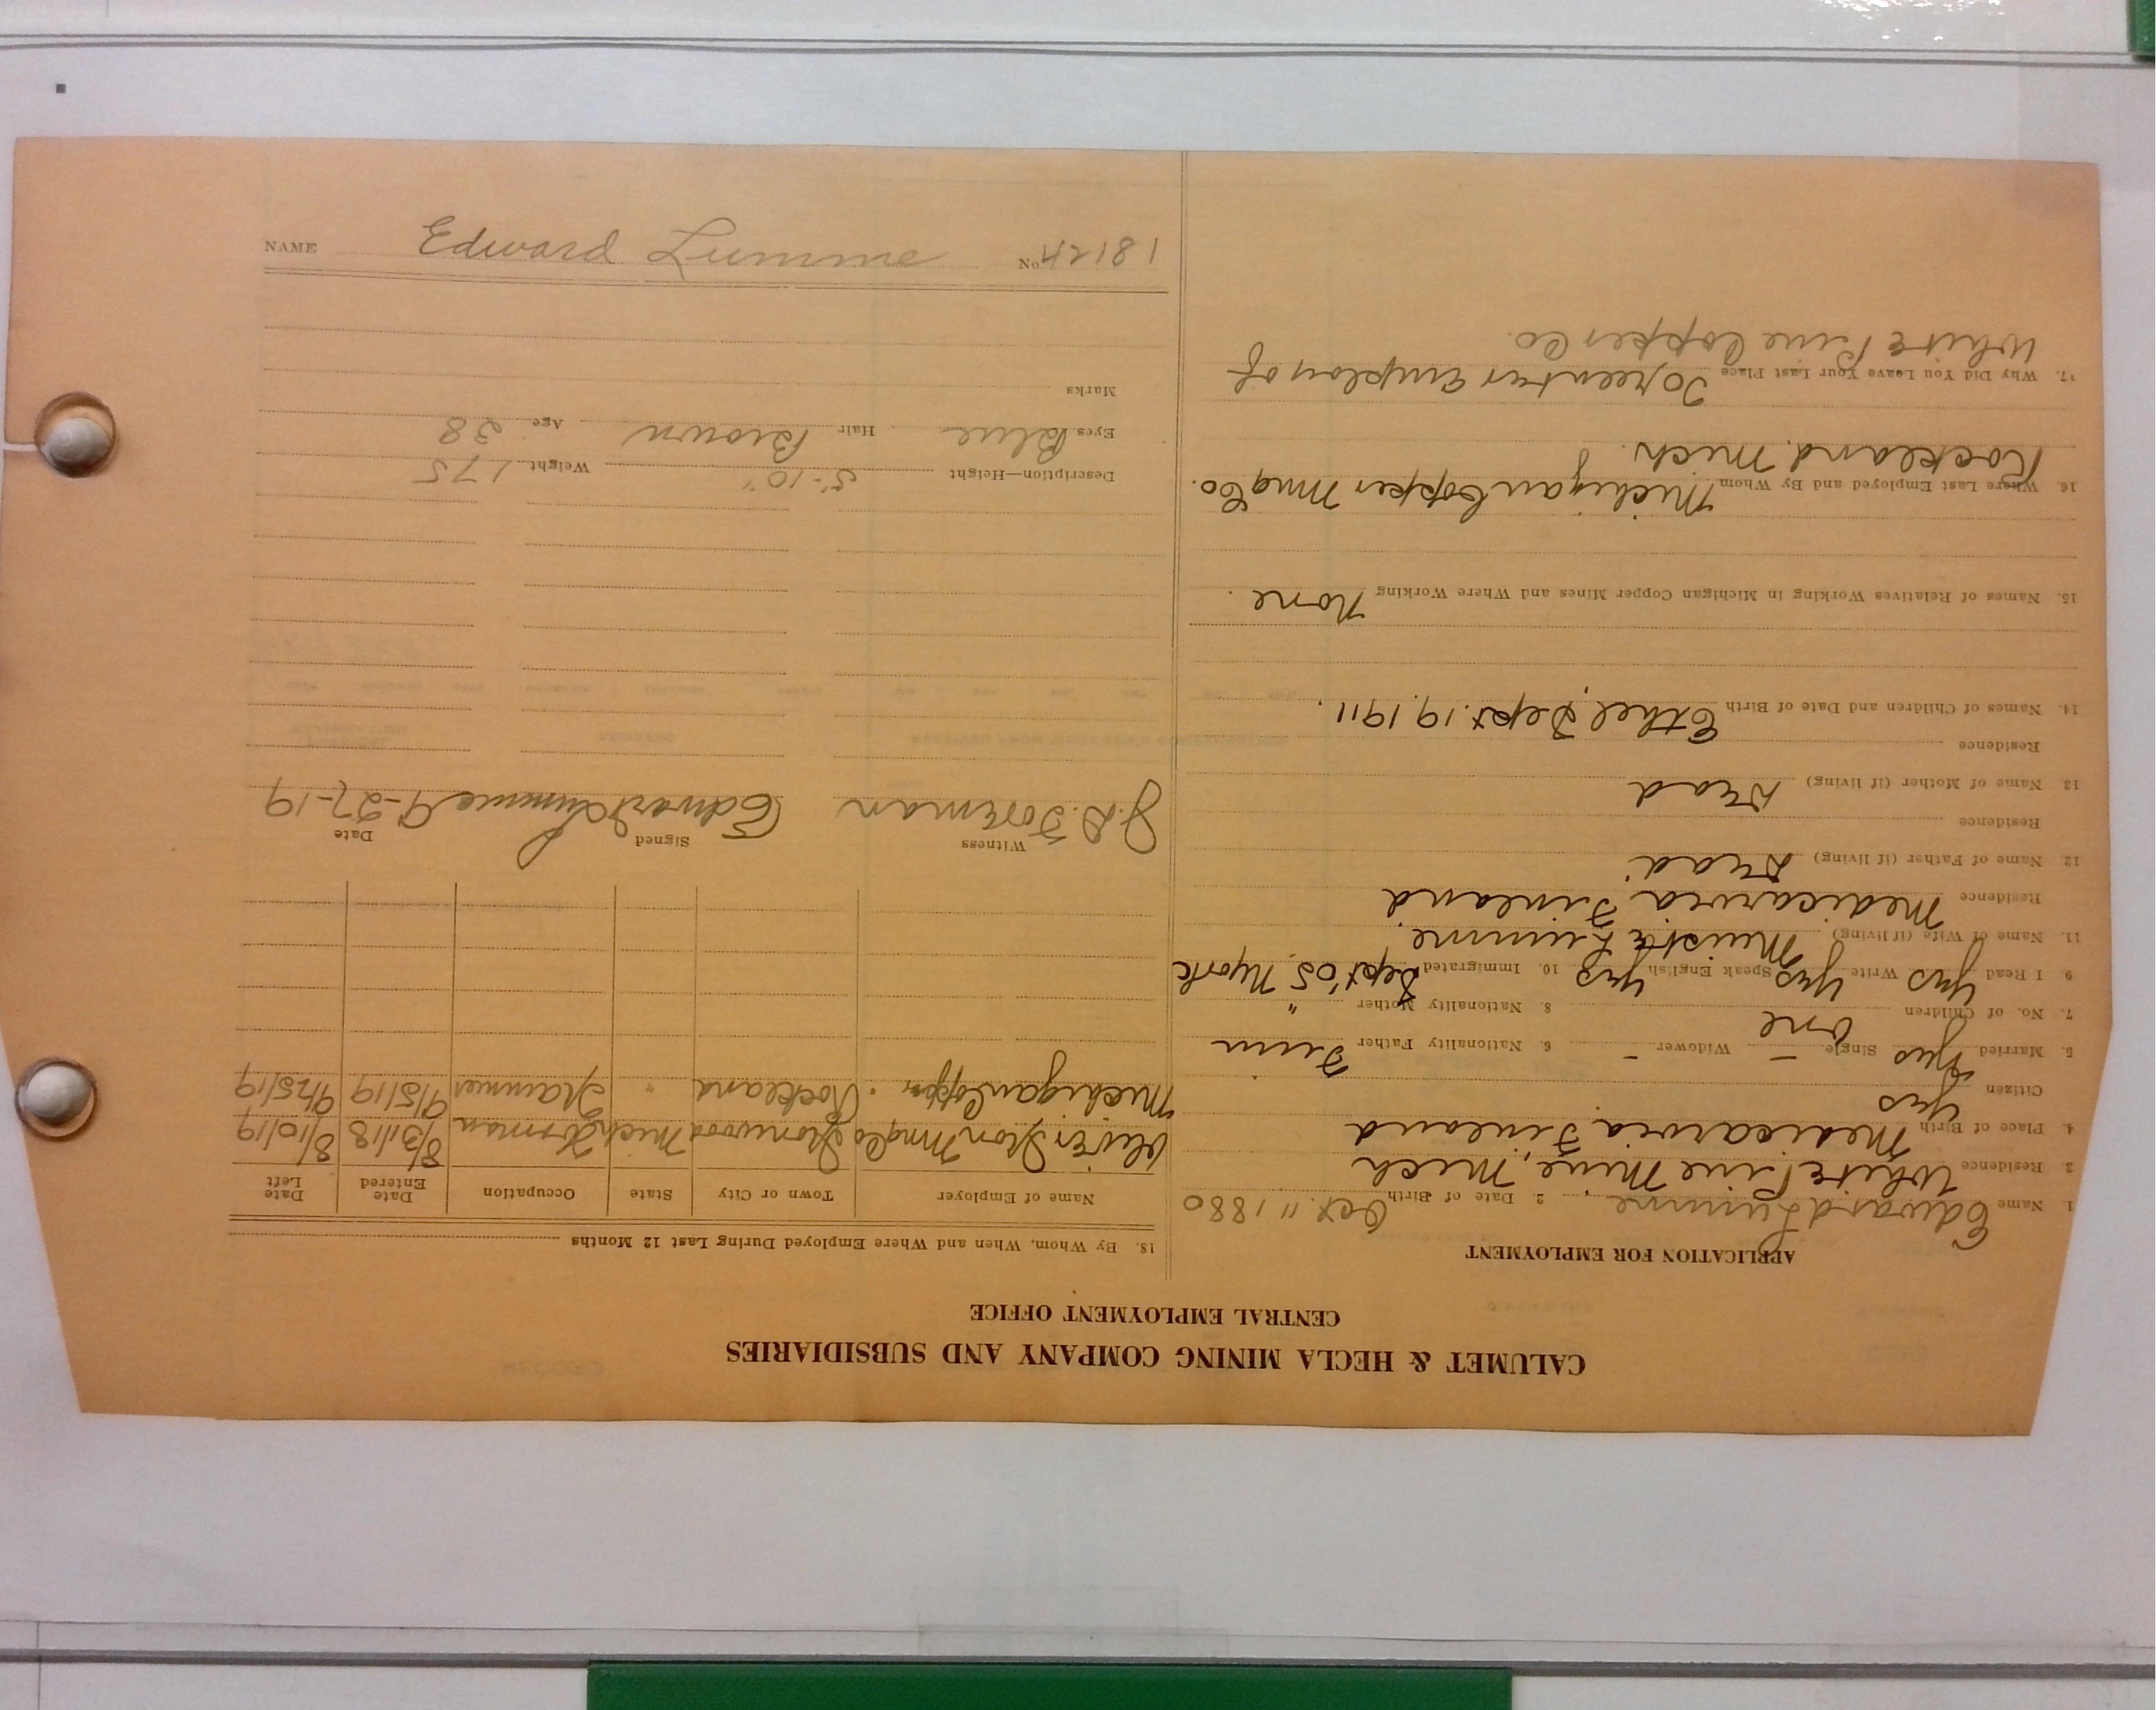 CALUMET & HECLA MINING COMPANY AND SUBSIDIARIES
CENTRAL EMPLOYMENT OFFICE
APPLICATION FOR EMPLOYMENT
1. Name Edward Lumme. 2. Date of Birth Oct. 11 1880
3. Residence White Pine Mine, Mich
4. Place of Birth Medicarvia Finland
Citizen Yes
5. Married Yes Single – Widower – 6. Nationality Father Finn
7. No. of Children One 8. Nationality Mother "
9. I Read Yes Write Yes Speak English Yes 10. Immigrated Sept '05 N York
11. Name of Wife (if living) Lumme.
Residence Medicarvia Finland.
12. Name of Father (if living) Dead
Residence
13. Name of Mother (if living) Dead
Residence
14. Names of Children and Date of Birth Ethel, Sept. 19. 1911.
15. Names of Relatives Working in Michigan Copper Mines and Where Working None.
16. Where Last Employed and By Whom Michigan Copper Mng Co.
Rockland, Mich.
17. Why Did You Leave Your Last Place To reenter employ of
White Pine Copper Co.
18. By Whom, When and Where Employed During Last 12 Months
Name of Employer Town or City State Occupation Date Entered Date Left
Oliver Iron Mng Co Ironwood Mich 8/31/18 8/10/19
Michigan Copper. Rockland " Trammer 9/5/19 9/25/19
Witness Signed Date
J. D. Foreman Edward Lumme 9-27-19
Description—Height 5'-10" Weight 175
Eyes Blue Hair Brown Age 38
Marks
NAME Edward Lumme No. 18124